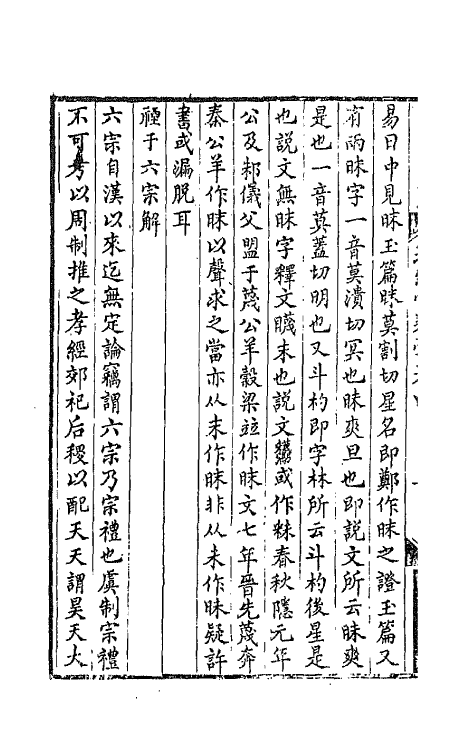 易日中見昧玉篇昧莫割切星名即鄭作昧之證玉篇又
有兩昧字一音莫潰切冥也昧爽旦也即說文所云昧爽
是也一音莫蓋切明也又斗杓即字林所云斗杓後星是
也說文無昧字釋文䁾末也說文䊳或作䊳春秋隱元年
公及邾儀父盟于蔑公羊穀梁竝作昧文七年晉先蔑奔
秦公羊作昧以聲求之當亦从末作昧非从未作昧疑許
書或漏脫耳
禋于六宗解
六宗自漢以來迄無定論竊謂六宗乃宗禮也虞制宗禮
不可考以周制推之孝經郊祀后稷以配天天謂昊天大